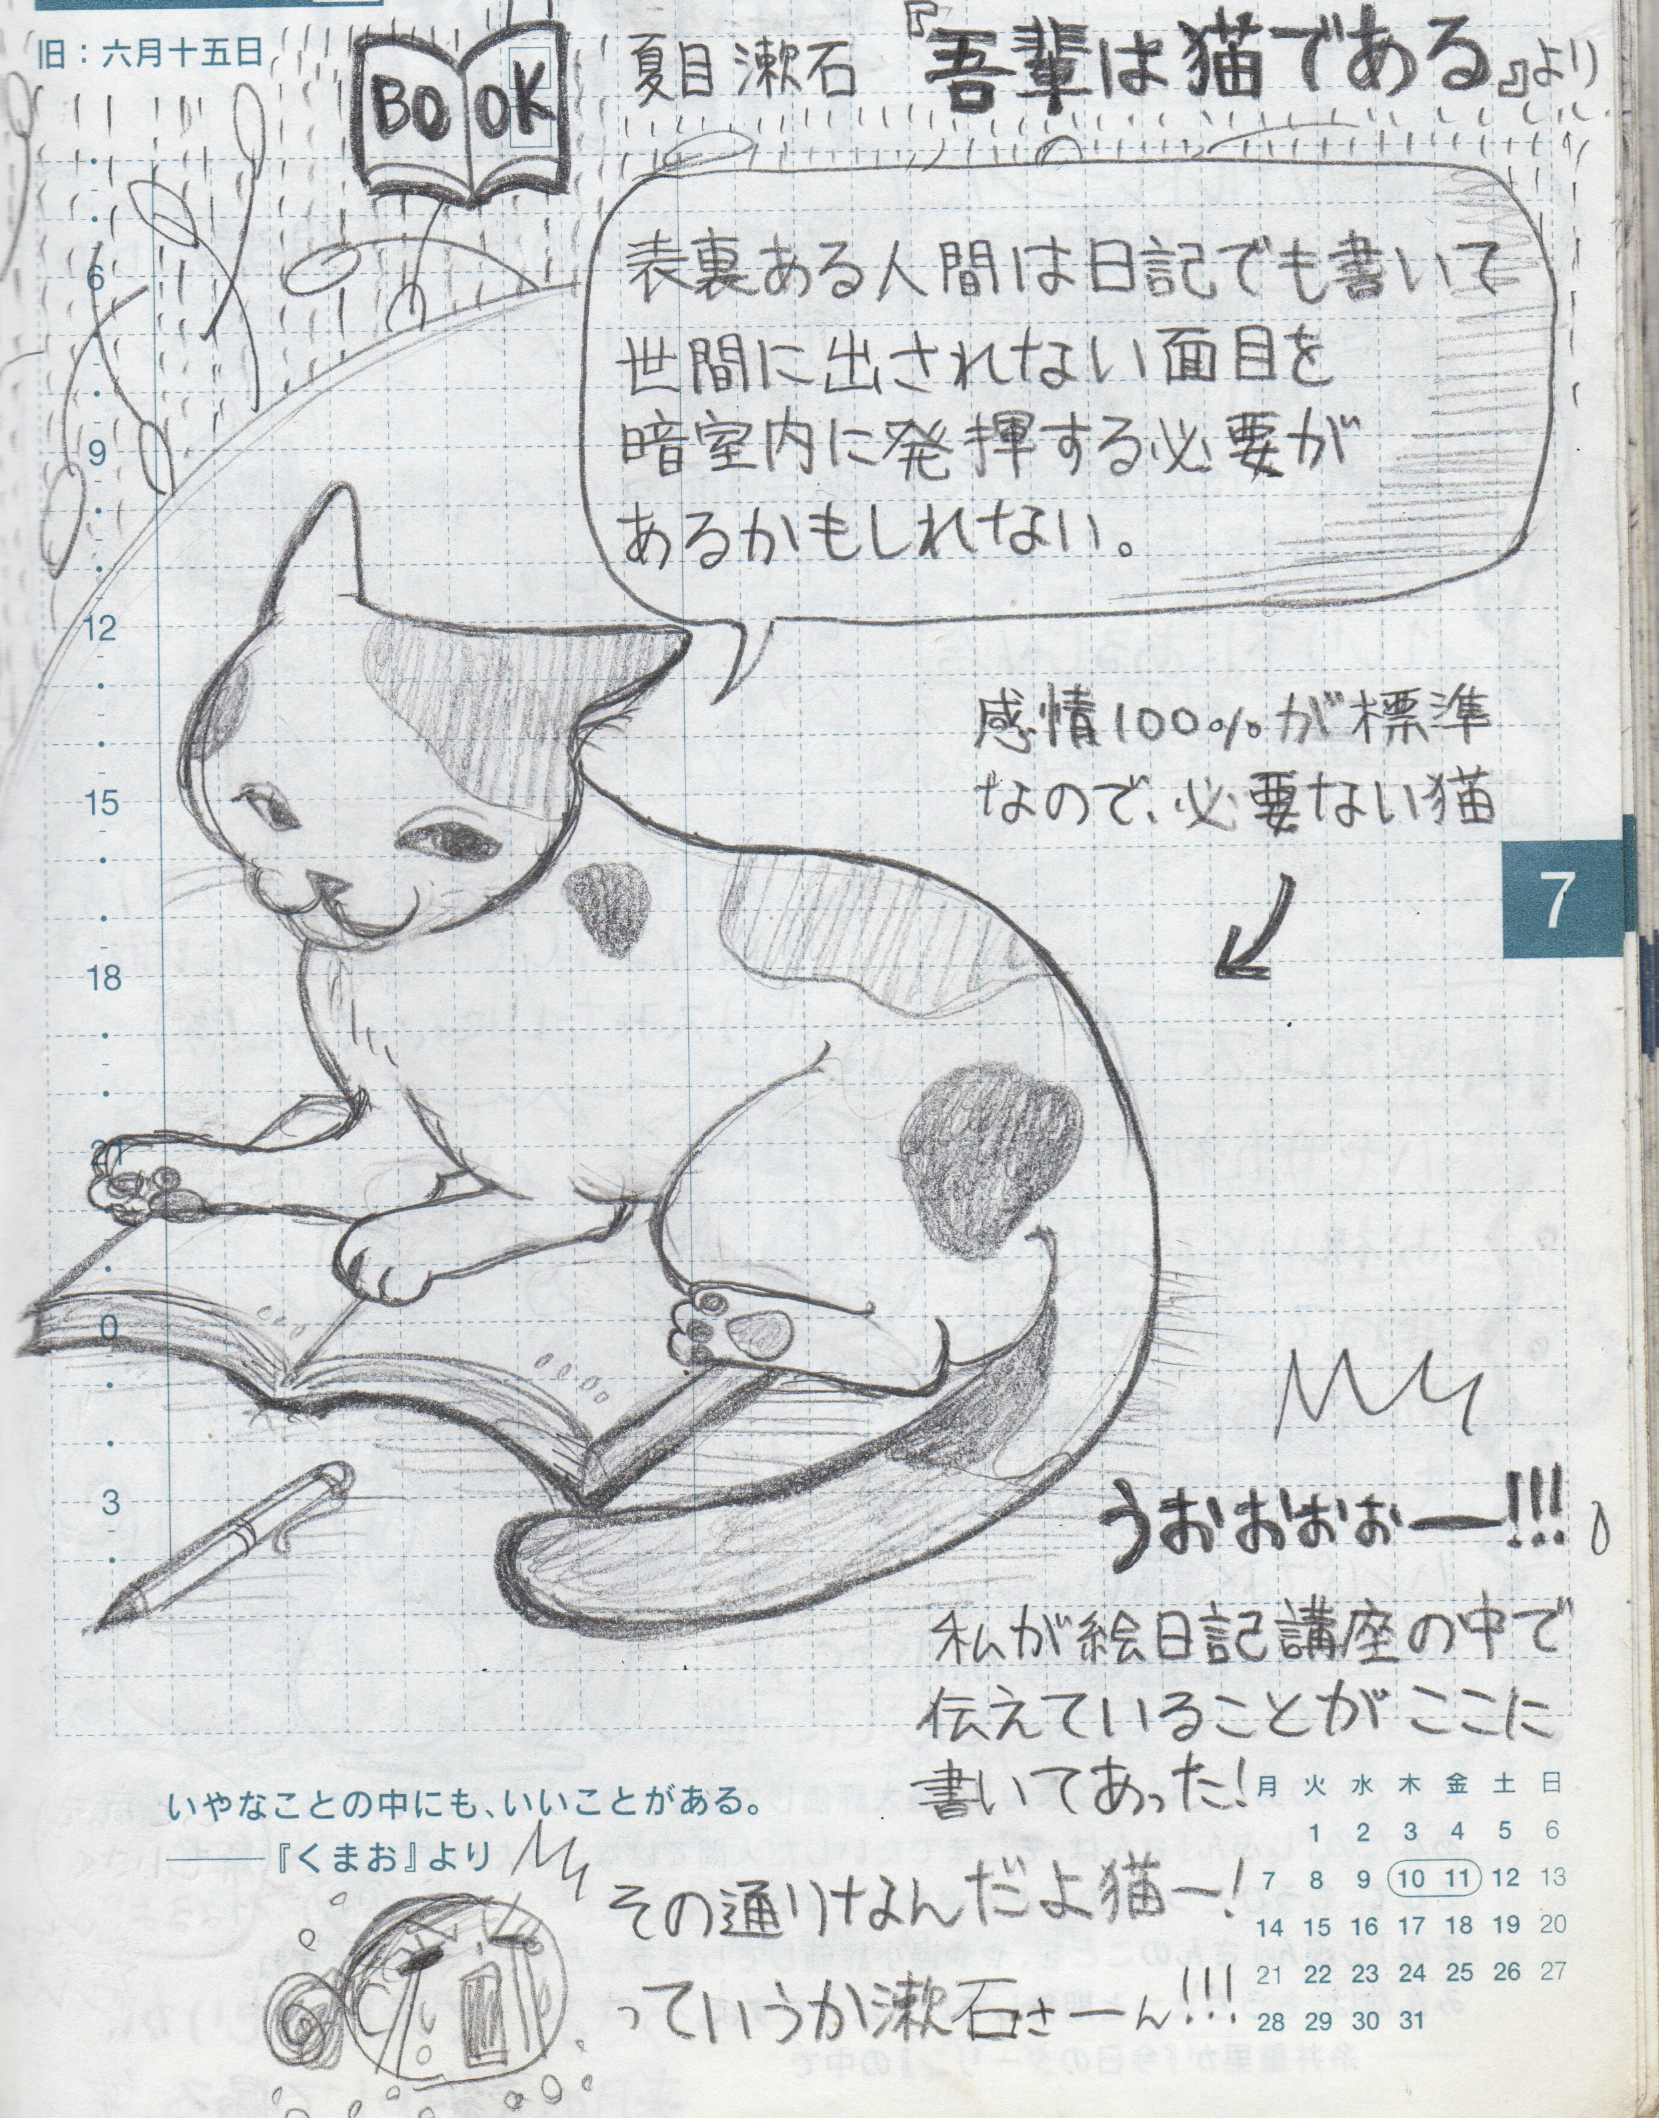 旧：六月十五日
BOOK
夏目漱石『吾輩は猫である』より
表裏ある人間は日記でも書いて
世間に出されない面目を
暗室内に発揮する必要が
あるかもしれない。
感情100%が標準
なので、必要ない猫
6
9
12
15
18
21
0
3
7
うおおおぉー!!!
私が絵日記講座の中で
伝えていることがここに
書いてあった!
いやなことの中にも、いいことがある。
——『くまお』より
その通りなんだよ猫ー!
っていうか漱石さーん!!!
月 火 水 木 金 土 日
1 2 3 4 5 6
7 8 9 10 11 12 13
14 15 16 17 18 19 20
21 22 23 24 25 26 27
28 29 30 31